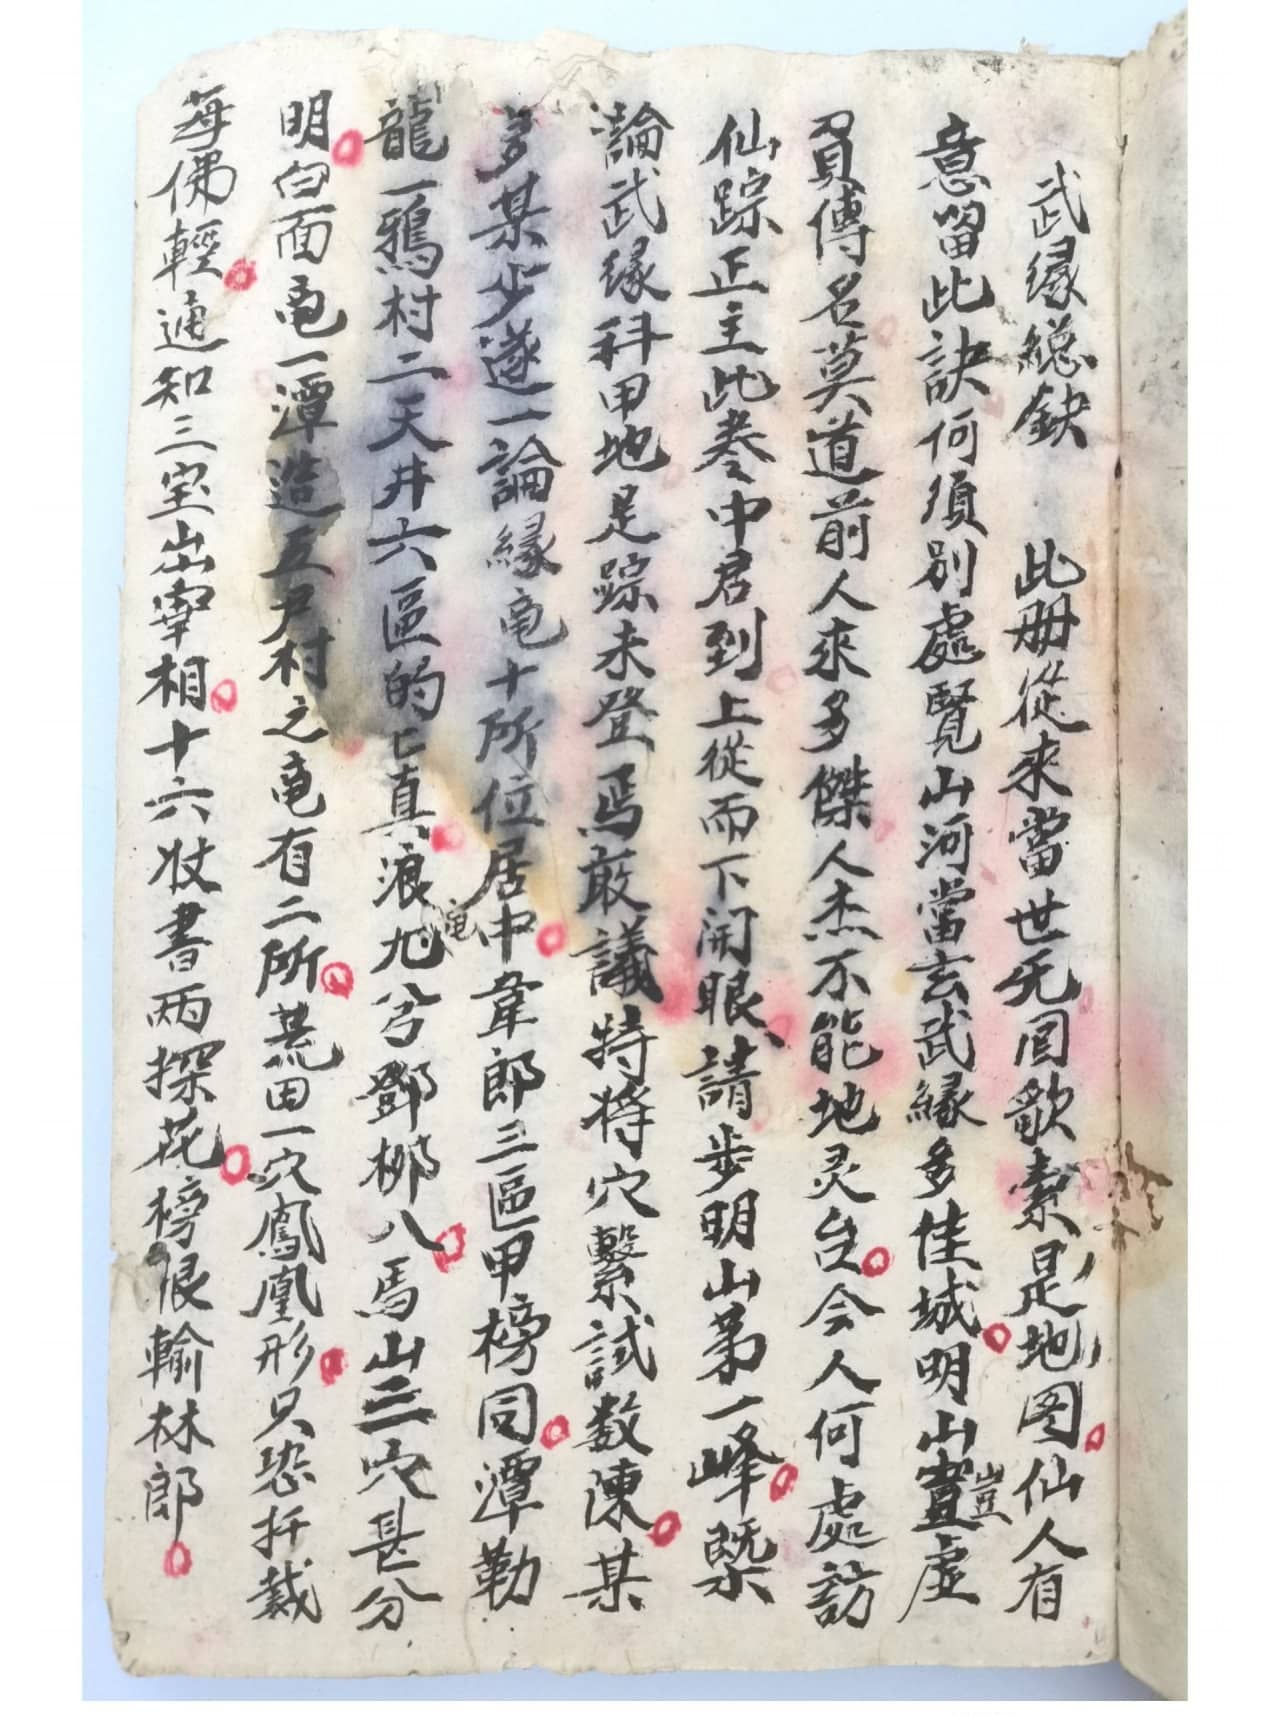 武縁總鈌　此册從來當世无囙歌素是地图仙人有
意畄此訣何須别處覽山河當玄武縁多佳城明山實豈虚
負傳名莫道前人來多傑人杰不能地灵台今人何處訪
仙踪正主此卷中君到上從而下開眼請步明山第一峰既
論武縁科甲地足踪未登焉敢議特将穴繫試数陳某
多某少遂一論縁黾十所位居中韋郎三區甲榜同潭勒
龍一鴉村二天井六區的七真浪黾九兮鄧栁八馬山三穴甚分
明白面黾一潭造五尹村之黾有二所荒田一穴鳳凰形只恐扦裁
每佛輕通知三宝出宰相十六收書两探花榜恨翰林郎